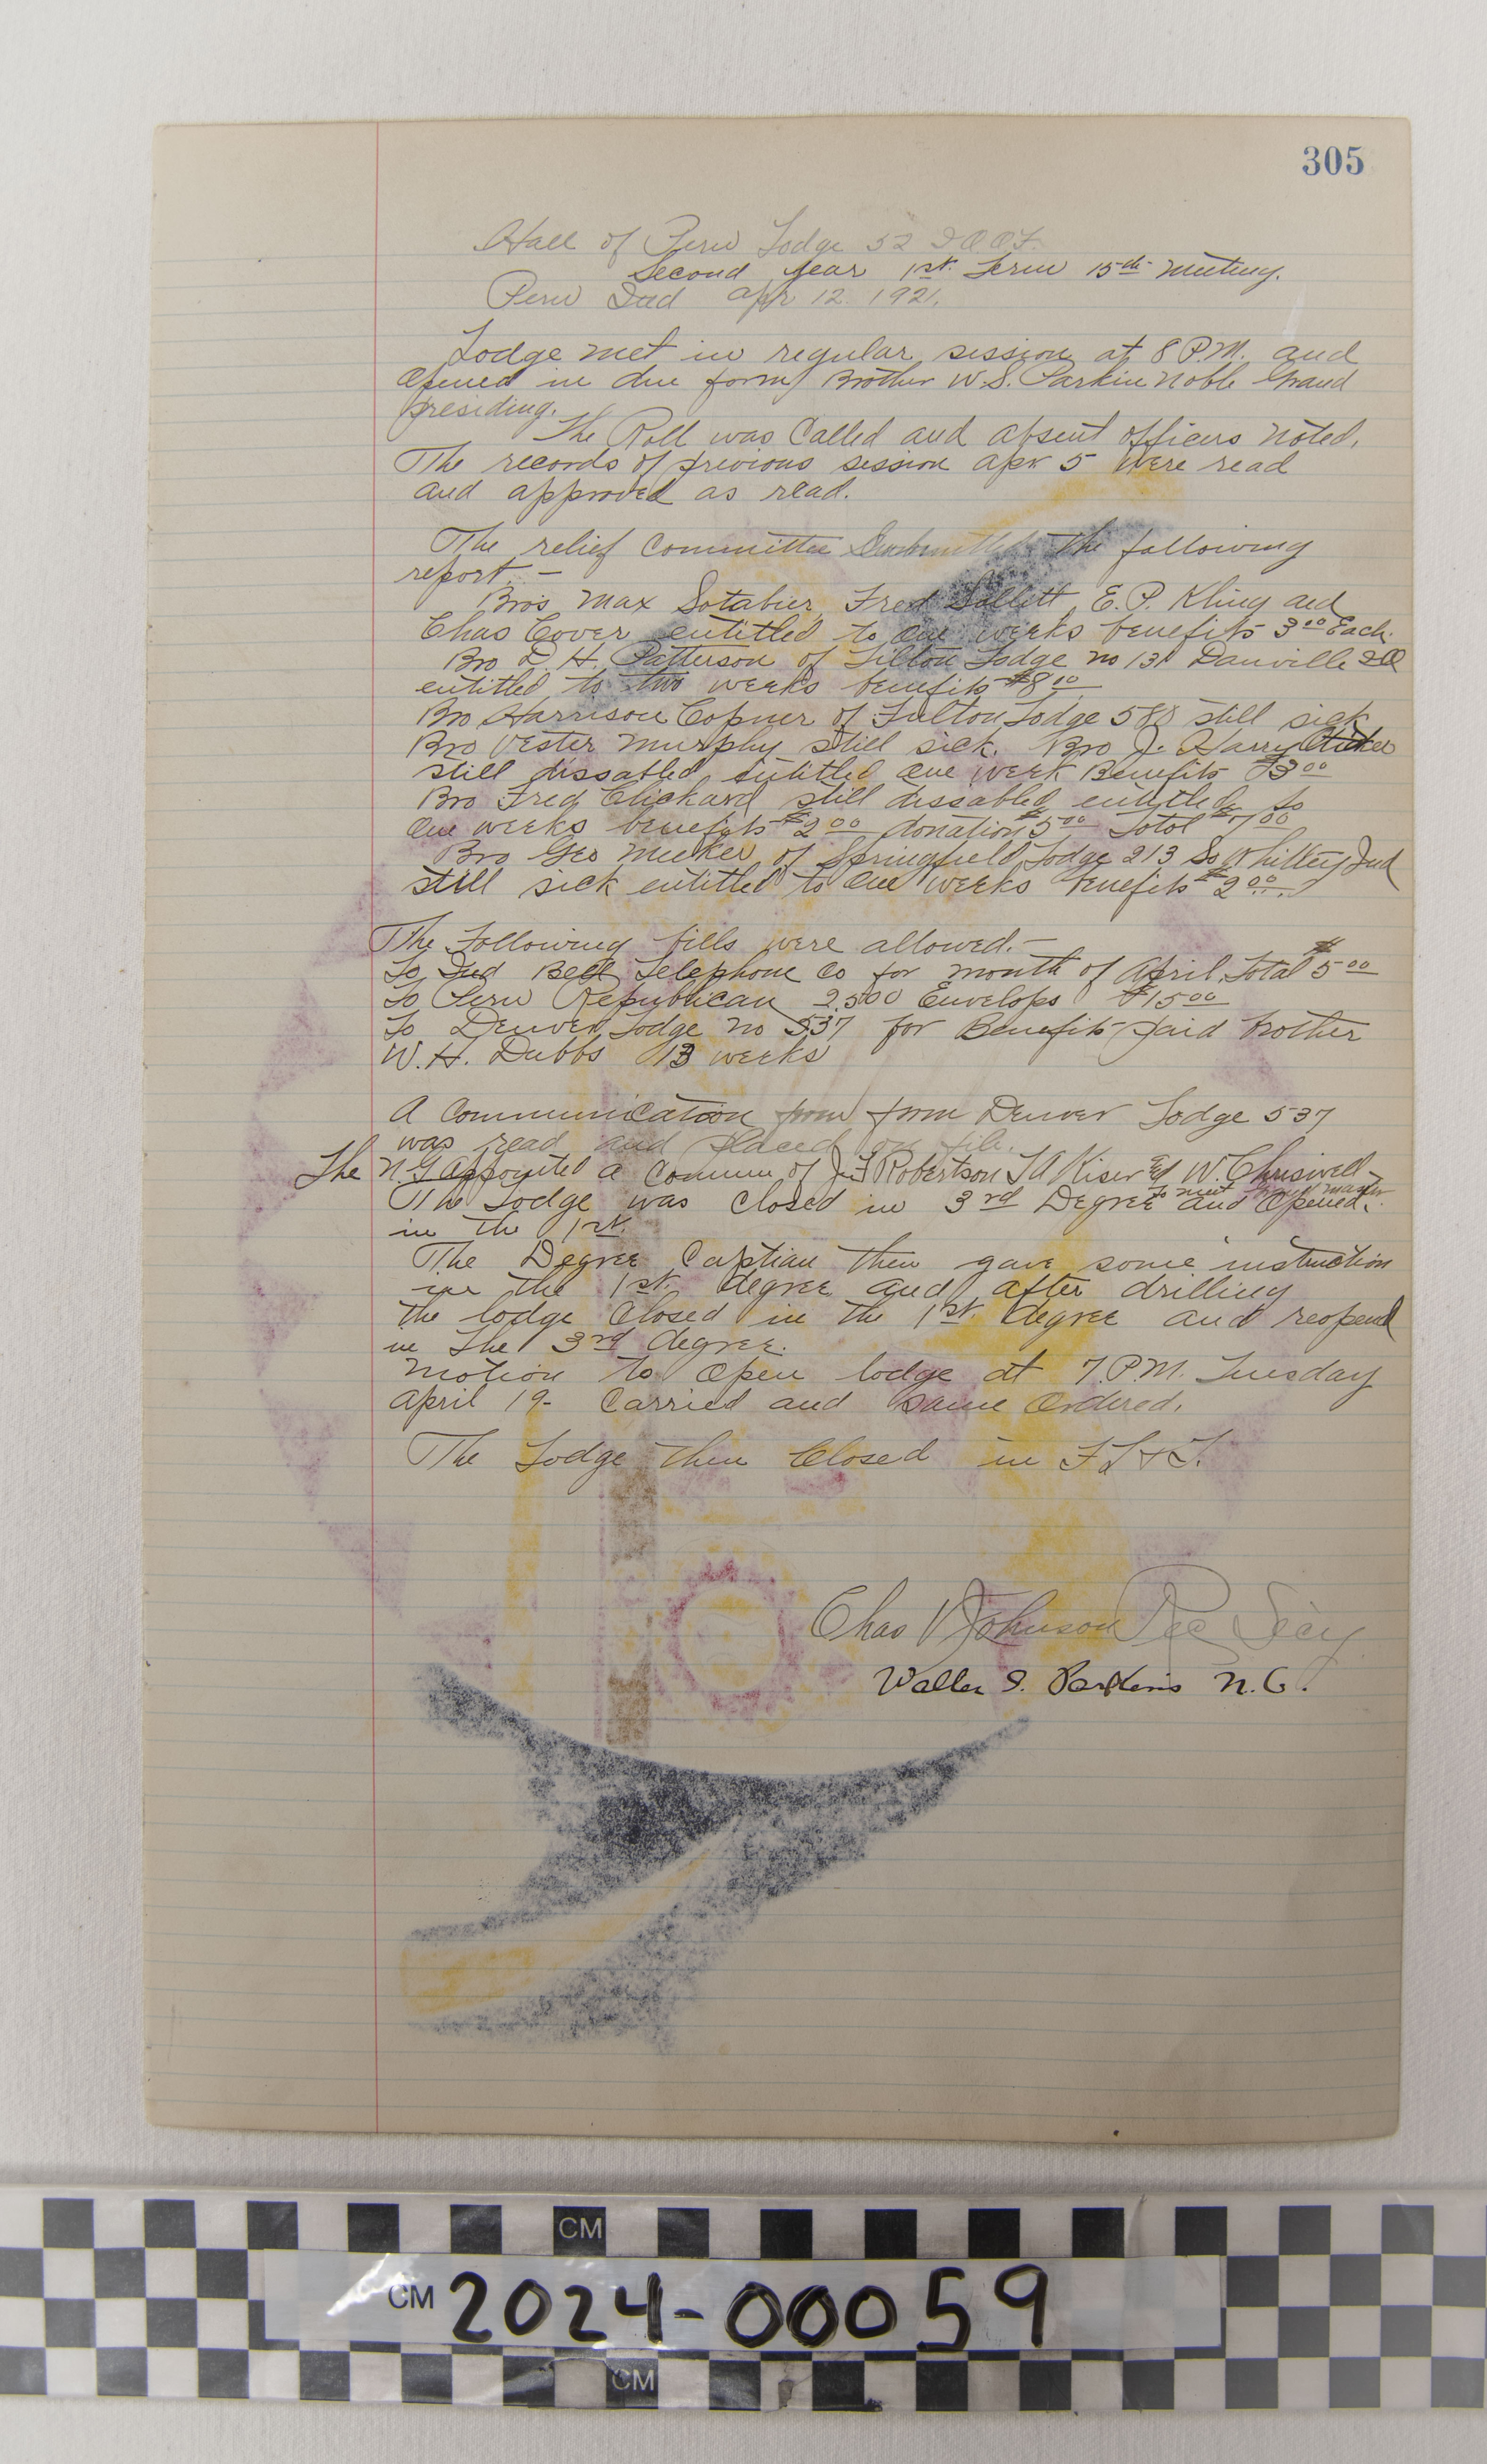 305
Hall of Peru Lodge 52 I O O F.
Second year 1st. Term 15th meeting.
Peru Ind Apr 12. 1921.
Lodge met in regular session at 8 P.M. and
opened in due form Brother W. S. Parkin Noble Grand
presiding.
The Roll was Called and absent officers noted.
The records of previous session apr 5 were read
and approved as read.
The relief Committee Submitted the following
report. —
Bros Max Fred Sollett E. P. Kling and
Chas Cover entitled to one weeks benefits 3 00 Each.
Bro D. H. Patterson of Tilton Lodge no 131 Danville Ill
entitled to two weeks benefits $8 00
Bro Harrison Copner of Fulton Lodge 580 still sick
Bro Vester Murphy still sick. Bro J. Harry
still dissabled entitled one week Benefits $3 00
Bro Fred Clickard still dissabled entitled to
one weeks benefits $2 00 donation $5 00 Total $7 00
Bro Geo Meeker of Springfield Lodge 213 So Whitley Ind
still sick entitled to one weeks benefits $2 00.
The following bills were allowed. —
To Ind Bell Telephone Co for month of April. Total $5 00
To Peru Republican 2500 Envelops $15 00
To Denver Lodge no 537 for Benefits paid brother
W. H. Dubbs 13 weeks
A Communication from from Denver Lodge 537
was read and placed on file.
The N.G appointed a Comm of Robertson T A Kiser W. Chriswell
to meet master
The Lodge was closed in 3rd Degree and Opened.
in the 1st.
The Degree Captian then gave some instruction
in the 1st. degree and after drilling
the lodge Closed in the 1st. degree and reopend
in the 3rd degree.
motion to open lodge at 7. P.M. Tuesday
April 19- Carried and same Ordered.
The Lodge then Closed in F L & T.
Chas V Johnson Rec Secy
Walter S. Parkins N. G.
CM
CM 2024-00059
CM